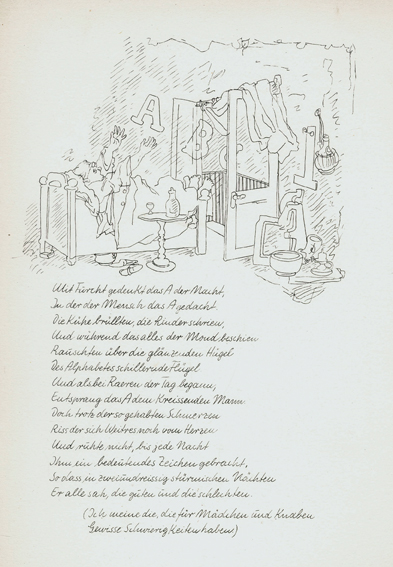 A
Mit Furcht gedenkt das A der Nacht,
In der der Mensch das A gedacht.
Die Kühe brüllten, die Rinder schrien,
Und während das alles der Mond beschien
Rauschten über die glänzenden Hügel
Des Alphabetes schillernde Flügel
Und als bei Raeren der Tag begann,
Entsprang das A dem Kreissenden Mann
Doch trotz der so gehabten Schmerzen
Riss der sich Weitres noch vom Herzen
Und ruhte nicht, bis jede Nacht
Ihm ein bedeutendes Zeichen gebracht,
So dass in zweiundreissig stürmischen Nächten
Er alle sah, die guten und die schlechten.
(Ich meine die, die für Mädchen und Knaben
Gewisse Schwierigkeiten haben)